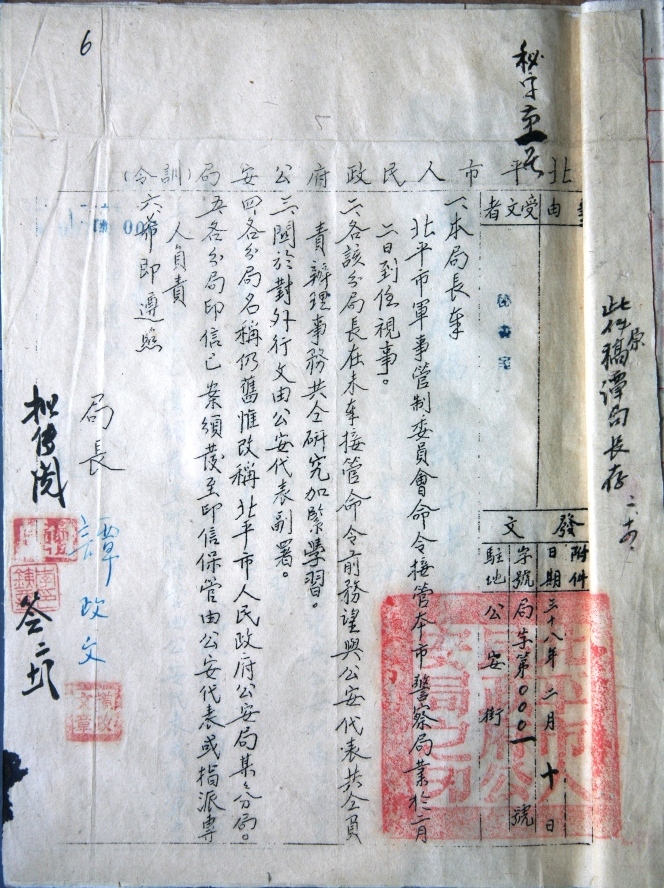 6
秘字第一號
北平市人民政府公安局(訓令)
事由
受文者
秘書室
發文
附件
日期 三十八年二月十日
字號 局字第0001號
駐地 公安街
一、本局長奉
北平市軍事管制委員會命令接管本市警察局業於二月
二日到任視事。
二、各該分局長在未奉接管命令前務望與公安代表共仝員
責辦理事務共仝研究加緊學習。
三、關於對外行文由公安代表副署。
四、各分局名稱仍舊惟改稱北平市人民政府公安局某々分局。
五、各分局印信已案頒發至印信保管由公安代表或指派專
人負責
六、希即遵照
局長 譚政文
此件原稿譚局長存